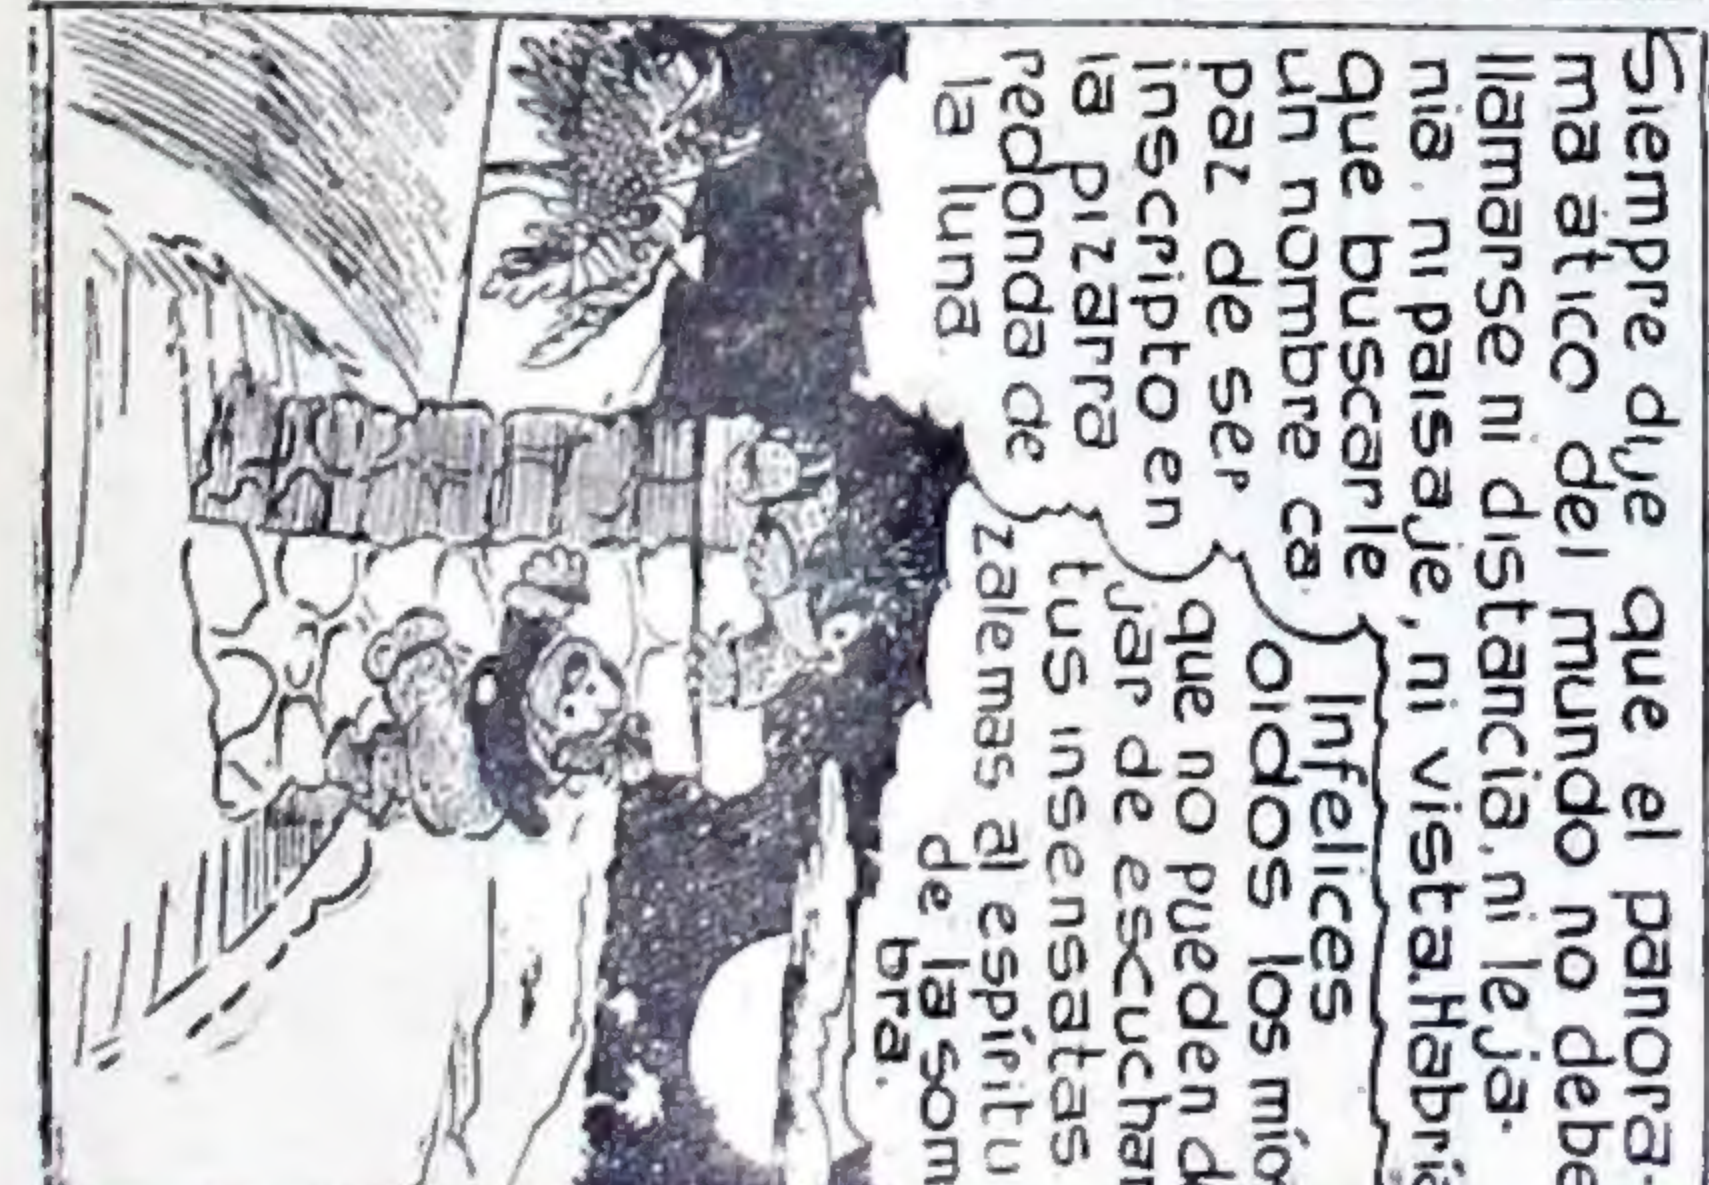 Siempre dije que el panora-
ma ático del mundo no debe
llamarse ni distancia, ni leja-
nia. ni paisaje, ni vista. Habría
que buscarle
un nombre ca
paz de ser
inscripto en
la pizarra
redonda de
la luna.
Infelices
oidos los míos
que no pueden de
jar de escuchar
tus insensatas
zalemas al espiritu
de la som
bra.